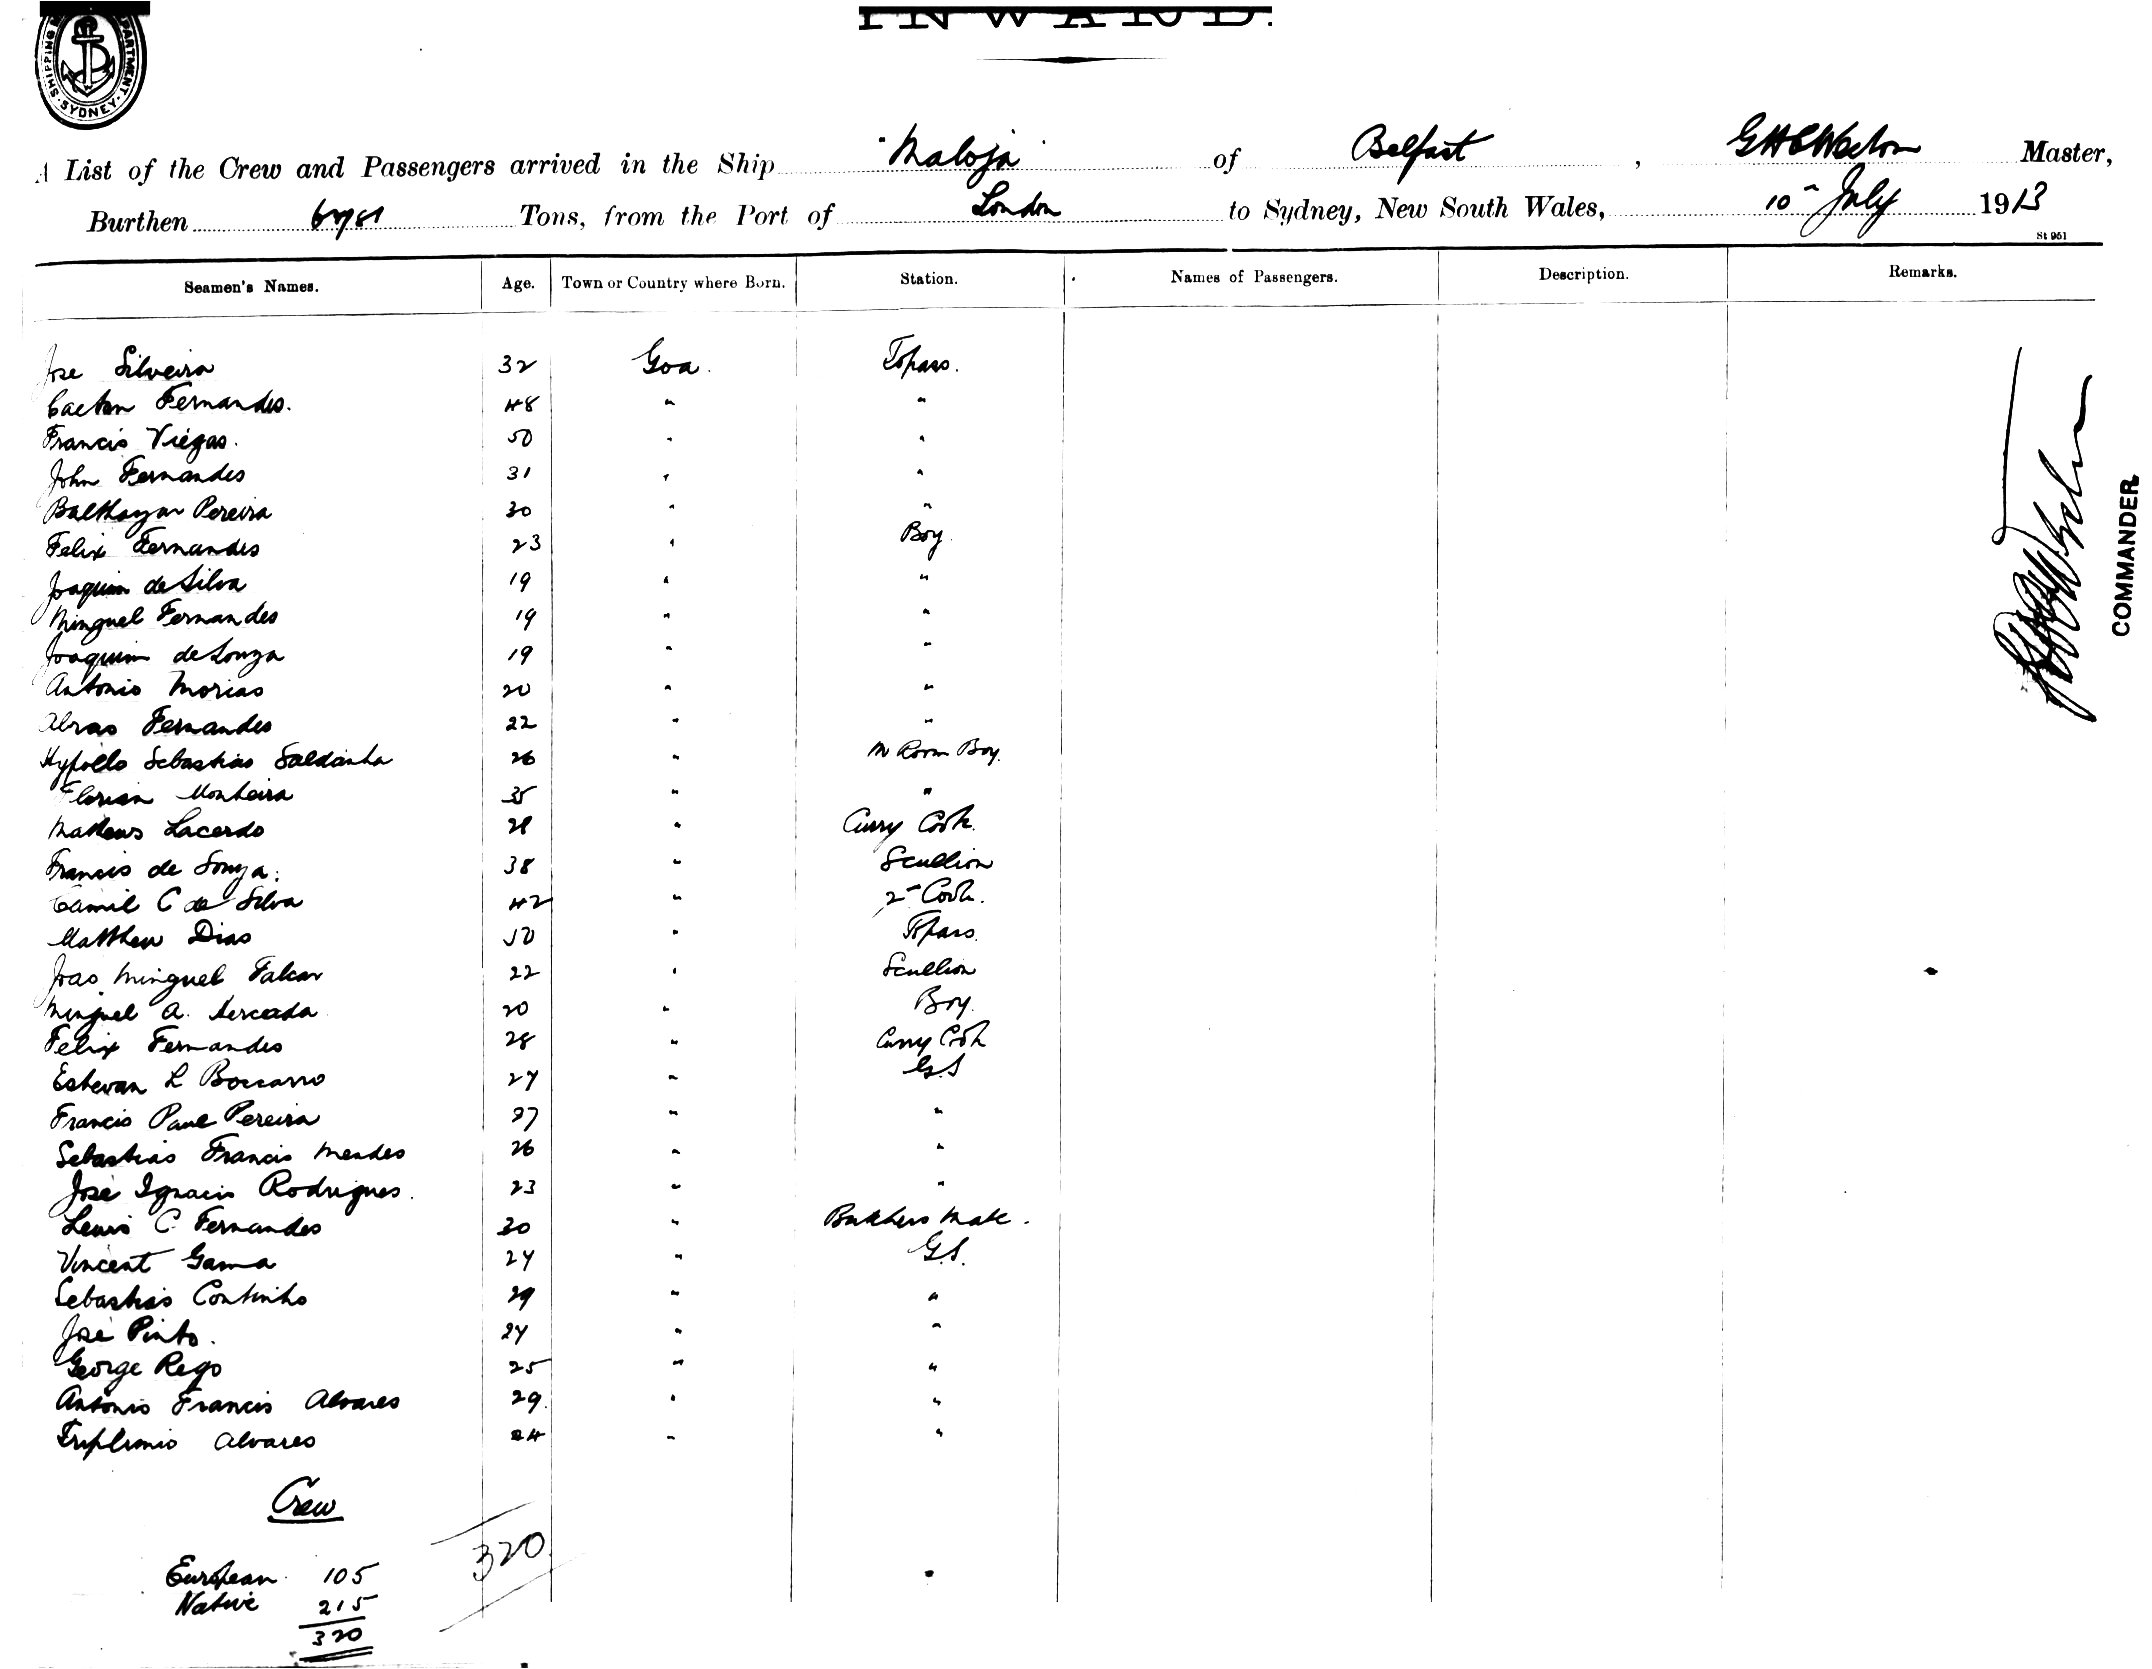 SHIPPING DEPARTMENT SYDNEY
INWARD.
A List of the Crew and Passengers arrived in the Ship "Maloja" of Belfast, Master,
Burthen Tons, from the Port of London to Sydney, New South Wales, 10 July 1913
St 951
Seamen's Names. Age. Town or Country where Born. Station. Names of Passengers. Description. Remarks.
Jose Silveira 32 Goa. Topass.
Caetan Fernandes. 48 " "
Francis Viegas. 50 " "
John Fernandes 31 " "
Balthazar Pereira 30 " "
Felix Fernandes 23 " Boy
Joaquim de Silva 19 " "
Minguel Fernandes 19 " "
Joaquim de Souza 19 " "
Antonio Morias 20 " "
Abras Fernandes 22 " "
Sebastiao Saldanha 26 " M Room Boy.
Florian Monteira 35 " "
Matheus Lacerdo 28 " Curry Cook.
Francis de Souza. 38 " Scullion
Camil C de Silva 42 " 2 Cook.
Matthew Dias 50 " Topass.
Joao Minguel Falcar 22 " Scullion
Minguel A. 20 " Boy.
Felix Fernandes 28 " Curry Cook
Estevan L Boccarro 27 " G.S
Francis Paul Pereira 27 " "
Sebastiao Francis Mendes 26 " "
José Ignacio Rodrigues. 23 " "
Lewis C Fernandes 30 " Butchers Mate.
Vincent Gama 24 " G.S.
Sebastiao Continho 29 " "
José Pinto. 24 " "
George Rego 25 " "
Antonio Francis Alvares 29. " "
Alvares 24 " "
COMMANDER
Crew
European 105
Native 215
320
320